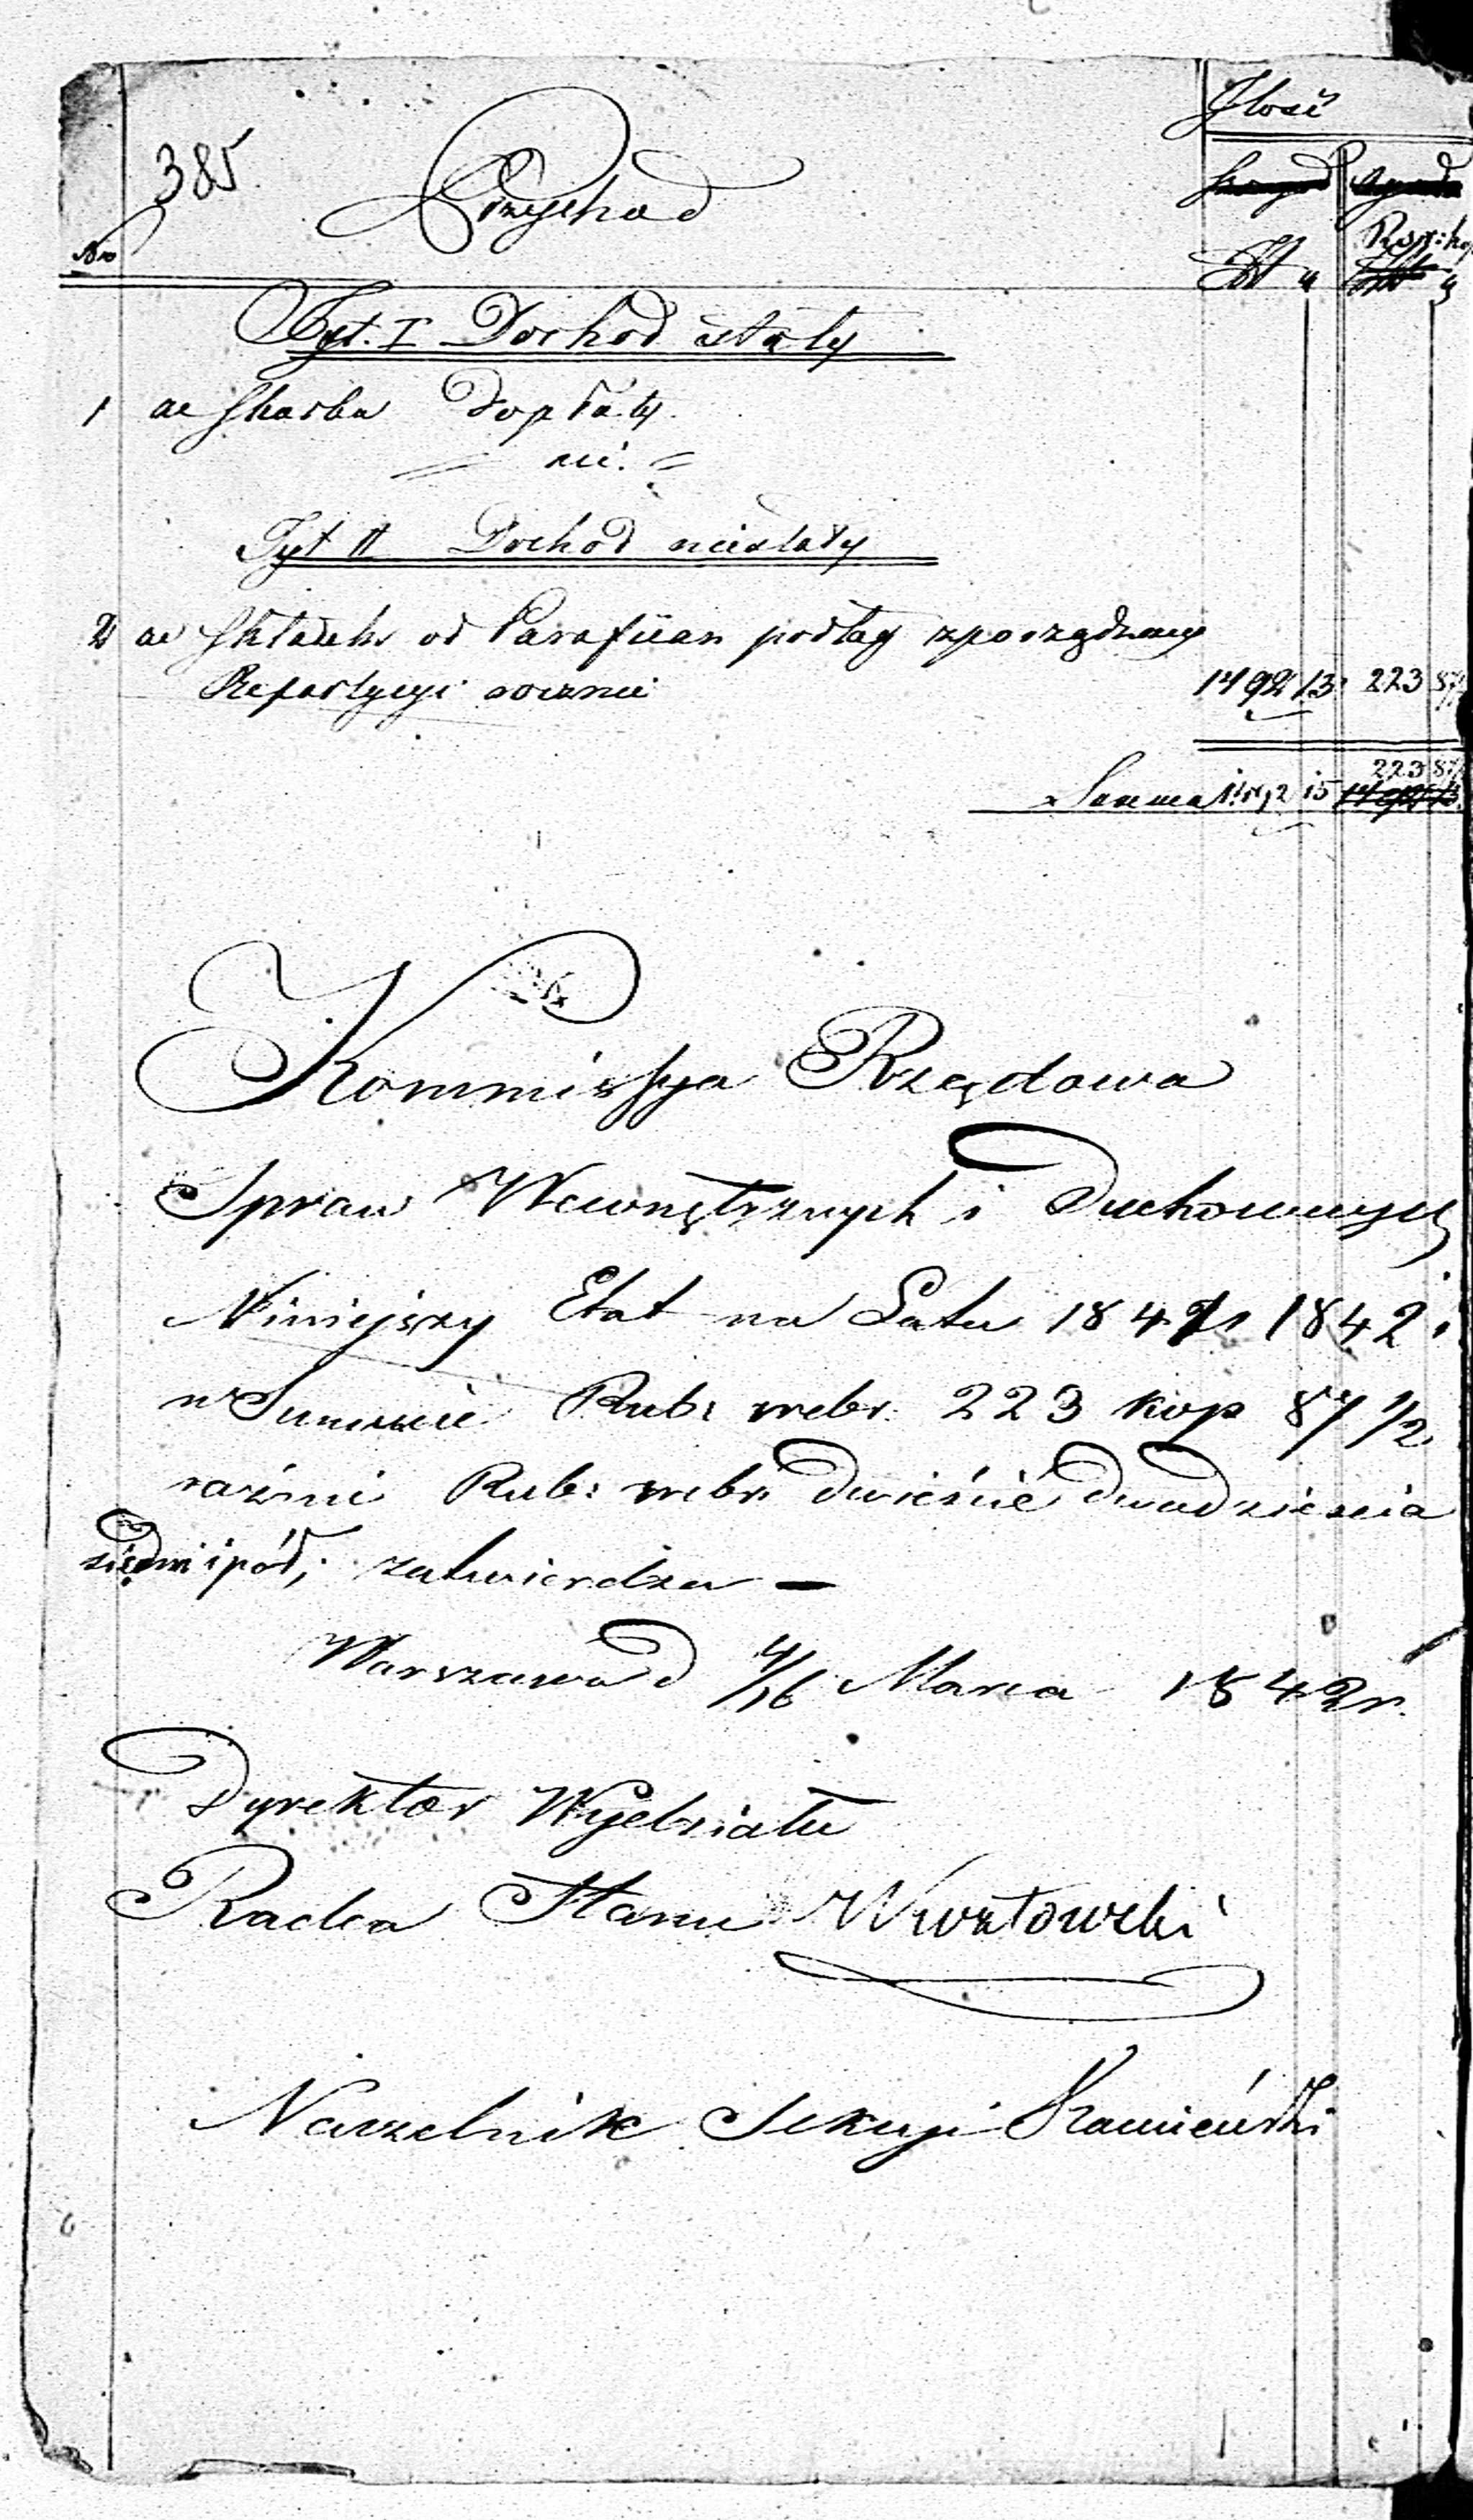 Ilość
385
Przychod
No
Zł g
Rsr: kop
Tyt. I Dochod stały
1 ze Skarbu dopłaty
nic.
Tyt II Dochod niestały
2 ze Składek od Parafiian podług sporządzoney
Repartycyi rocznie 1492 15 223 87½
Summa 1492 15 223 87½
Kommissya Rzędowa
Spraw Wewnętrznych i Duchownych
Niniejszy Etat na Lata 1841 1842 i
w Summie Rub: srebr. 223 kop 87 1/2
raźnie Rub: srebr. dwieście dwadzieścia
siedm i pół; zatwierdza —
Warszawa d 4/16 Marca 1842 r.
Dyrektor Wydziału
Radca Stanu
Naczelnik Sekcyi Kamieński